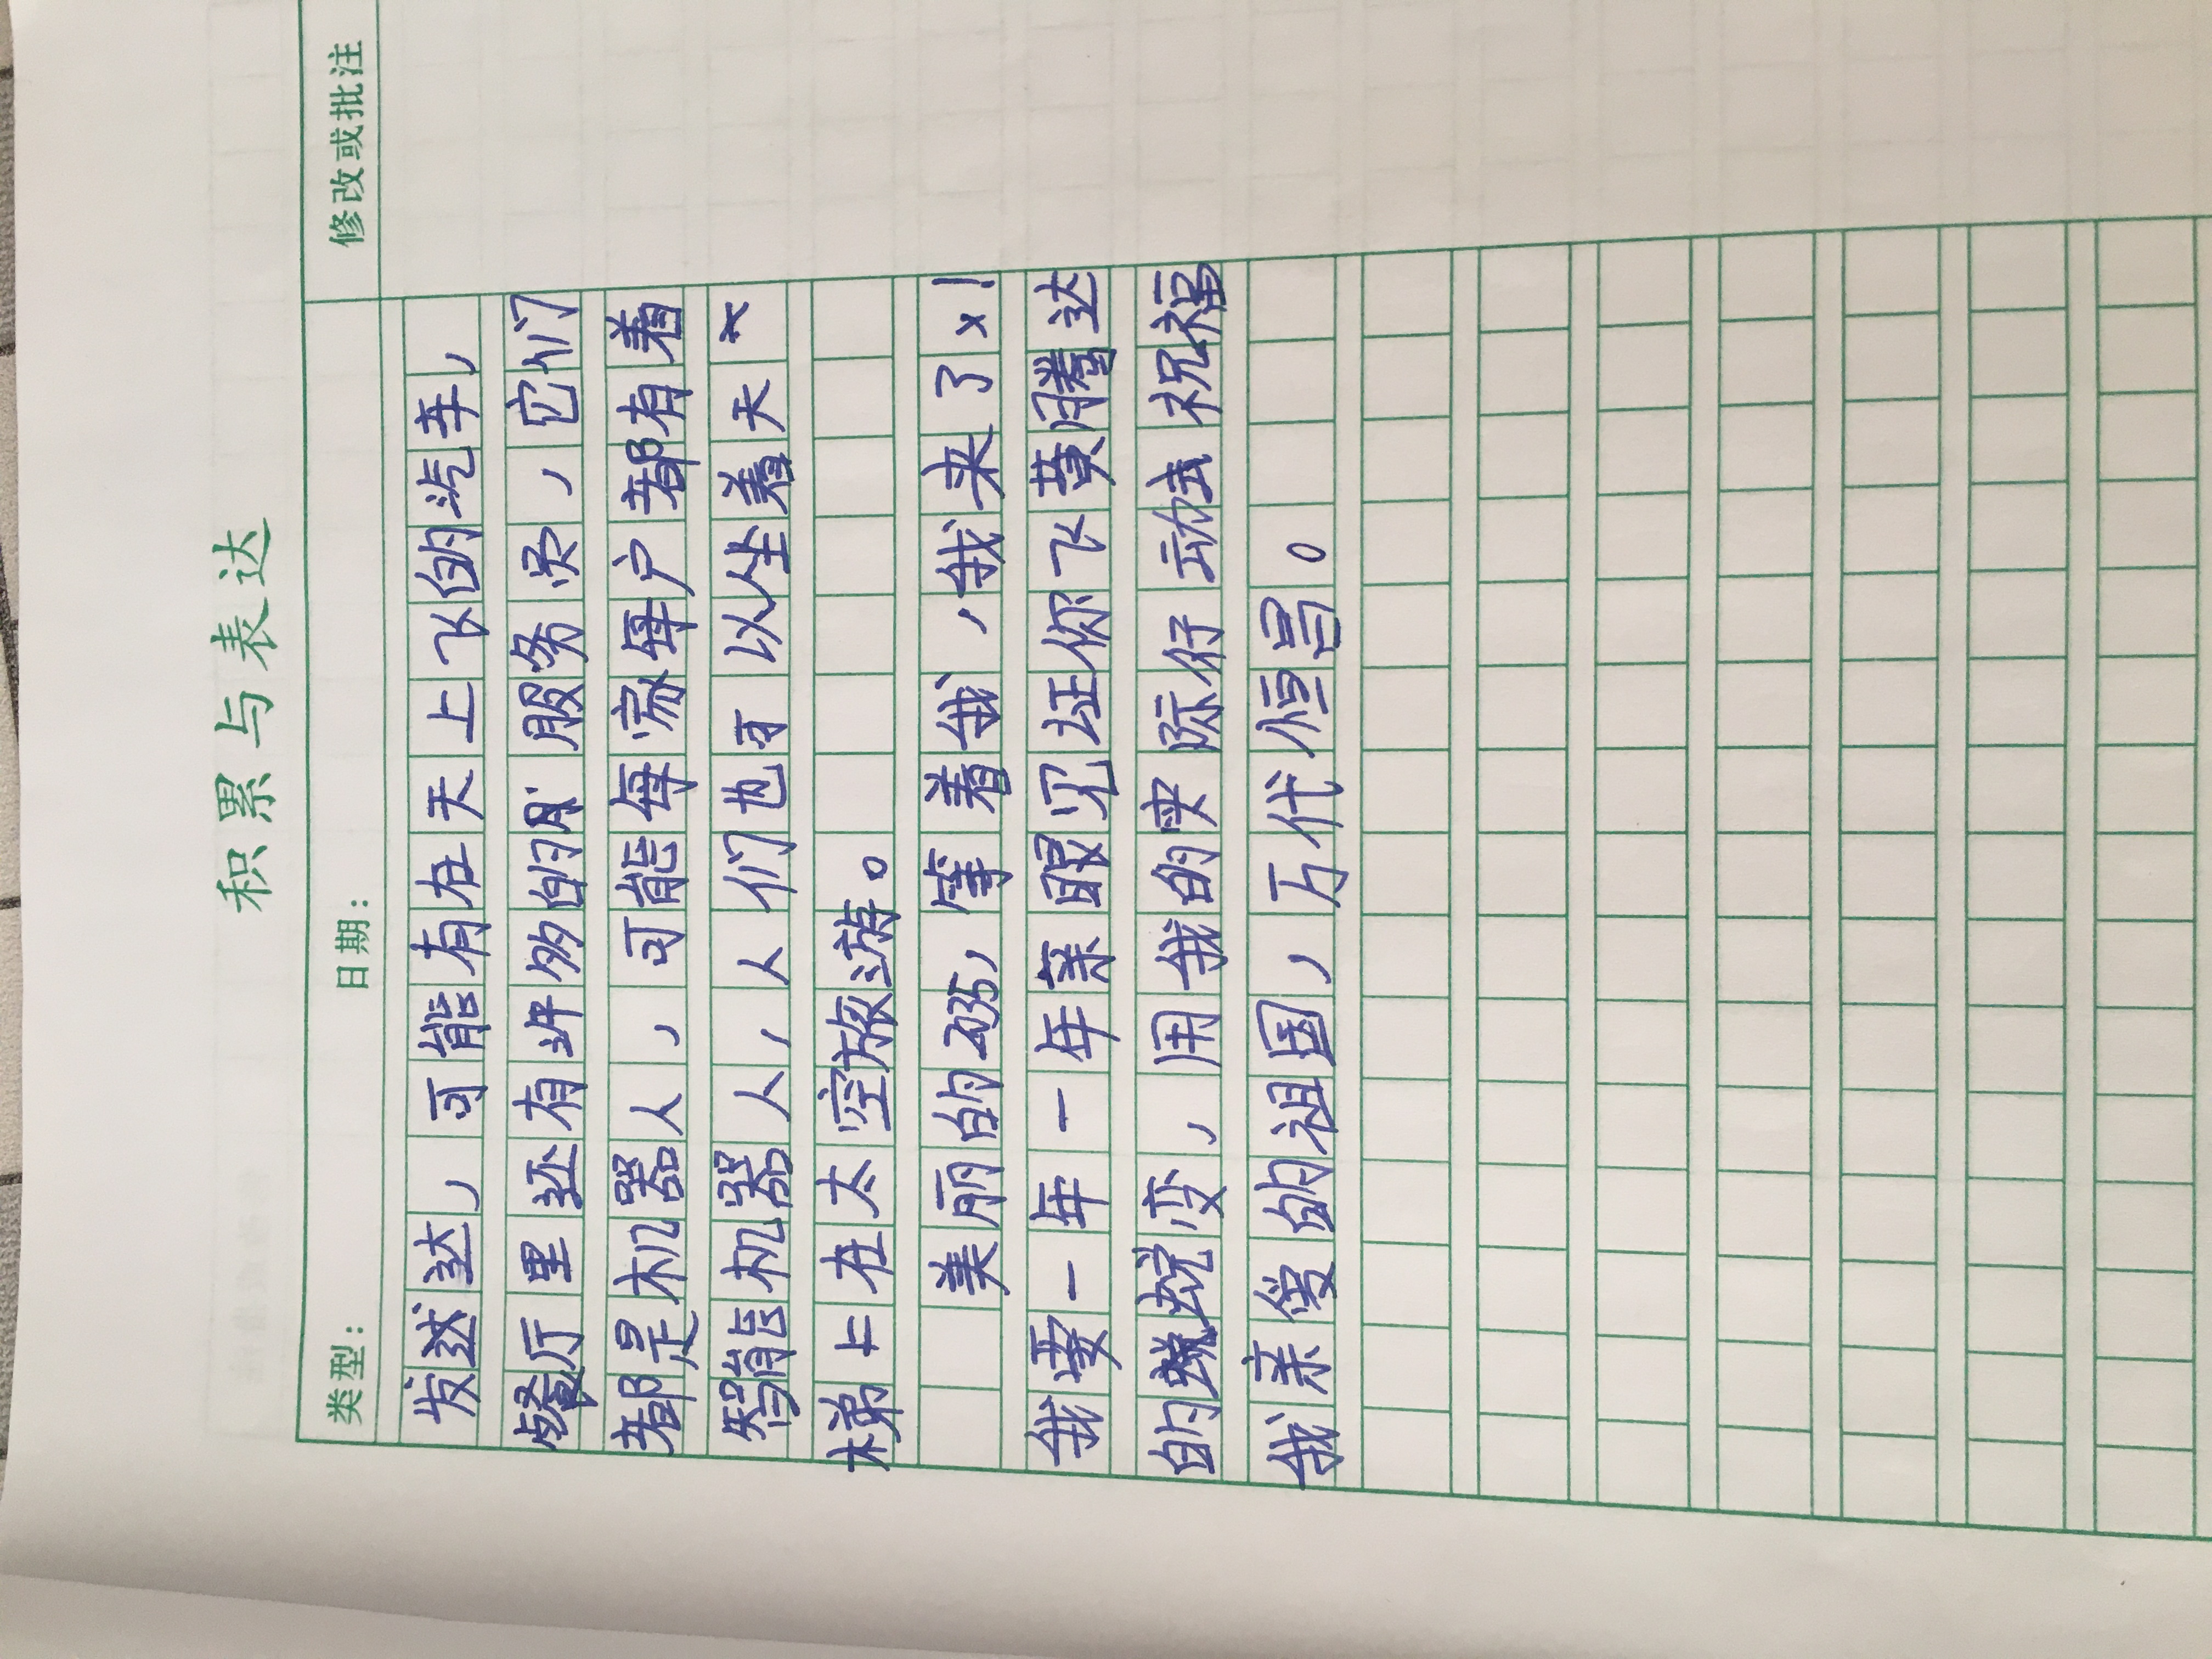 积累与表达
类型： 日期： 修改或批注
发达，可能有在天上飞的汽车，
餐厅里还有许多的服务员，它们
都是机器人，可能每家每户都有着
智能机器人，人们也可以坐着天
梯上在太空旅游。
美丽的235，等着我，我来了！
我要一年一年亲眼见证你飞黄腾达
的蜕变，用我的实际行动去祝福
我亲爱的祖国，万代恒昌。